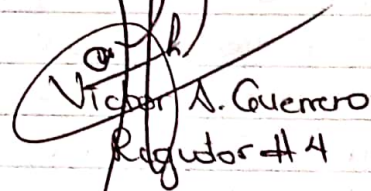 Victor A. Guerrero
Regidor # 4